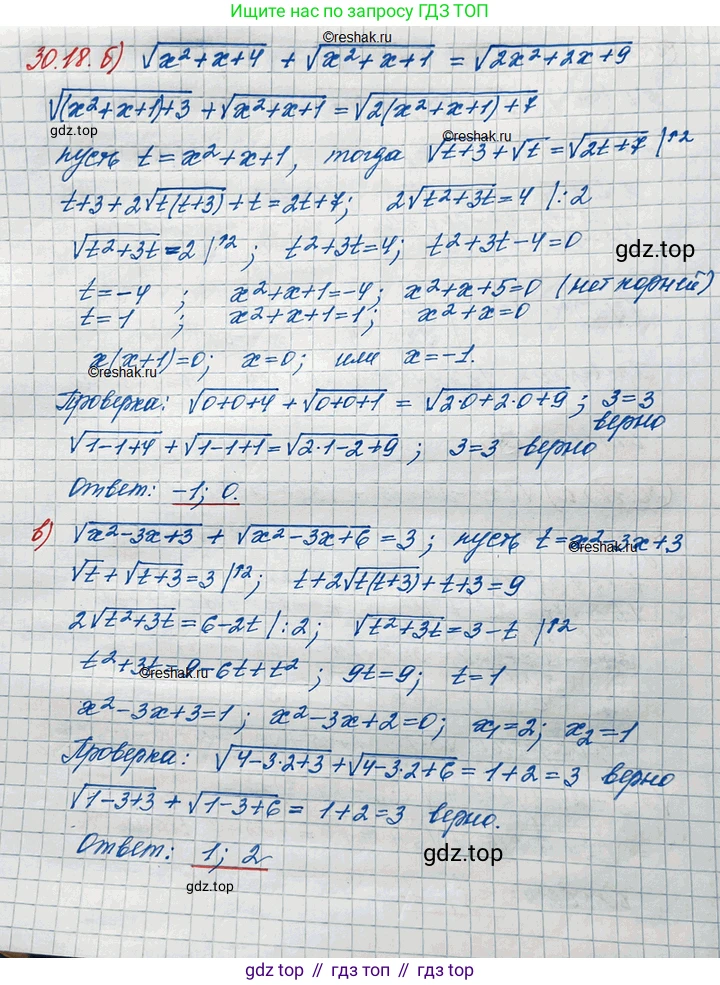 Ищите ответы по запросу ГДЗ ТОП
©reshak.ru
30.18. б) √(x²+x+4) + √(x²+x+1) = √(2x²+2x+9)
√((x²+x+1)+3) + √(x²+x+1) = √(2(x²+x+1)+7)
gdz.top
©reshak.ru
пусть t = x²+x+1, тогда √(t+3) + √t = √(2t+7) |↑2
t+3+2√(t(t+3)) + t = 2t+7; 2√(t²+3t) = 4 |:2
√(t²+3t) = 2 |↑2; t²+3t=4; t²+3t-4=0
gdz.top
t=-4 ; x²+x+1=-4; x²+x+5=0 (нет корней)
t=1 ; x²+x+1=1; x²+x=0
x(x+1)=0; x=0; или x=-1.
©reshak.ru
Проверка: √(0+0+4) + √(0+0+1) = √(2·0+2·0+9); 3=3
верно
√(1-1+4) + √(1-1+1) = √(2·1-2+9) ; 3=3 верно
Ответ: -1; 0.
в) √(x²-3x+3) + √(x²-3x+6) = 3; пусть t=x²-3x+3
©reshak.ru
√t + √(t+3) = 3 |↑2; t+2√(t(t+3)) + t+3=9
2√(t²+3t) = 6-2t |:2; √(t²+3t) = 3-t |↑2
t²+3t=9-6t+t² ; 9t=9; t=1
©reshak.ru
x²-3x+3=1; x²-3x+2=0; x₁=2; x₂=1
Проверка: √(4-3·2+3) + √(4-3·2+6) = 1+2=3 верно
√(1-3+3) + √(1-3+6) = 1+2=3 верно.
Ответ: 1; 2
gdz.top
gdz.top
gdz top // гдз топ // gdz.top